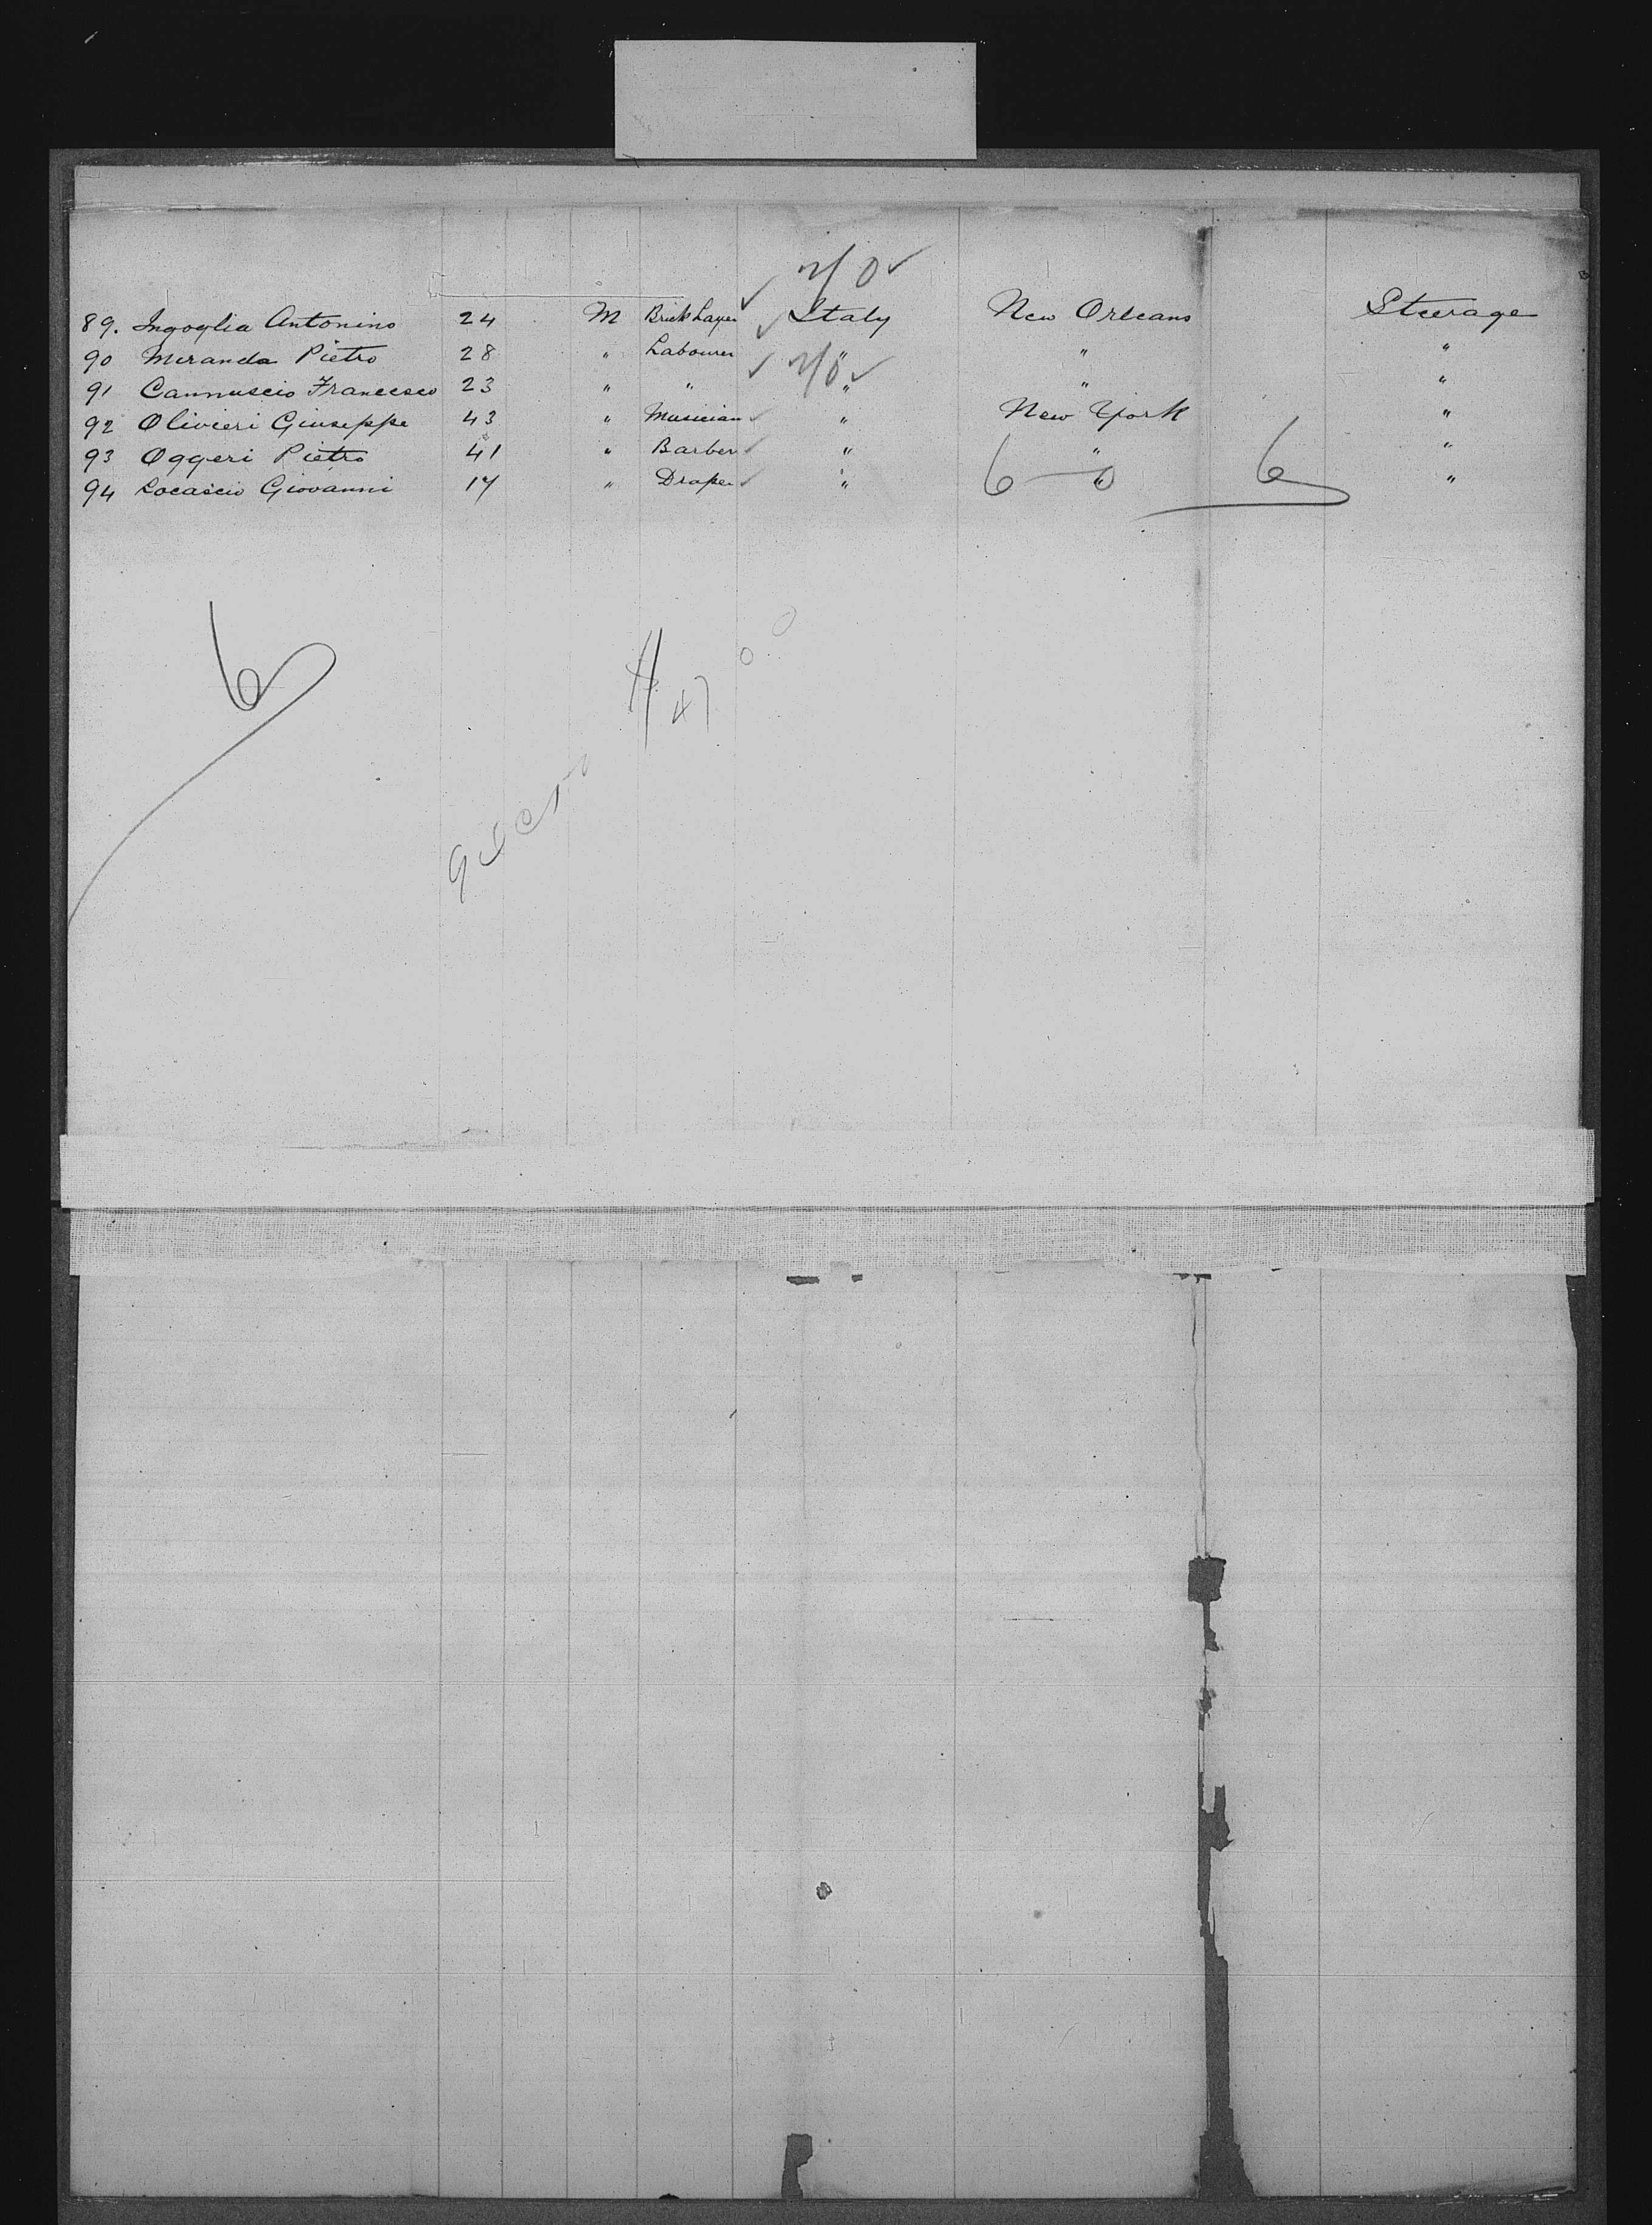 89. Ingoglia Antonino 24 M Brick Layer Italy New Orleans Steerage
90 Miranda Pietro 28 " Labourer " " "
91 Cannuscio Francesco 23 " " " " "
92 Olivieri Giuseppe 43 " Musician " New York "
93 Oggeri Pietro 41 " Barber " " "
94 Locascio Giovanni 17 " Draper " " "
6 0 6
6
47